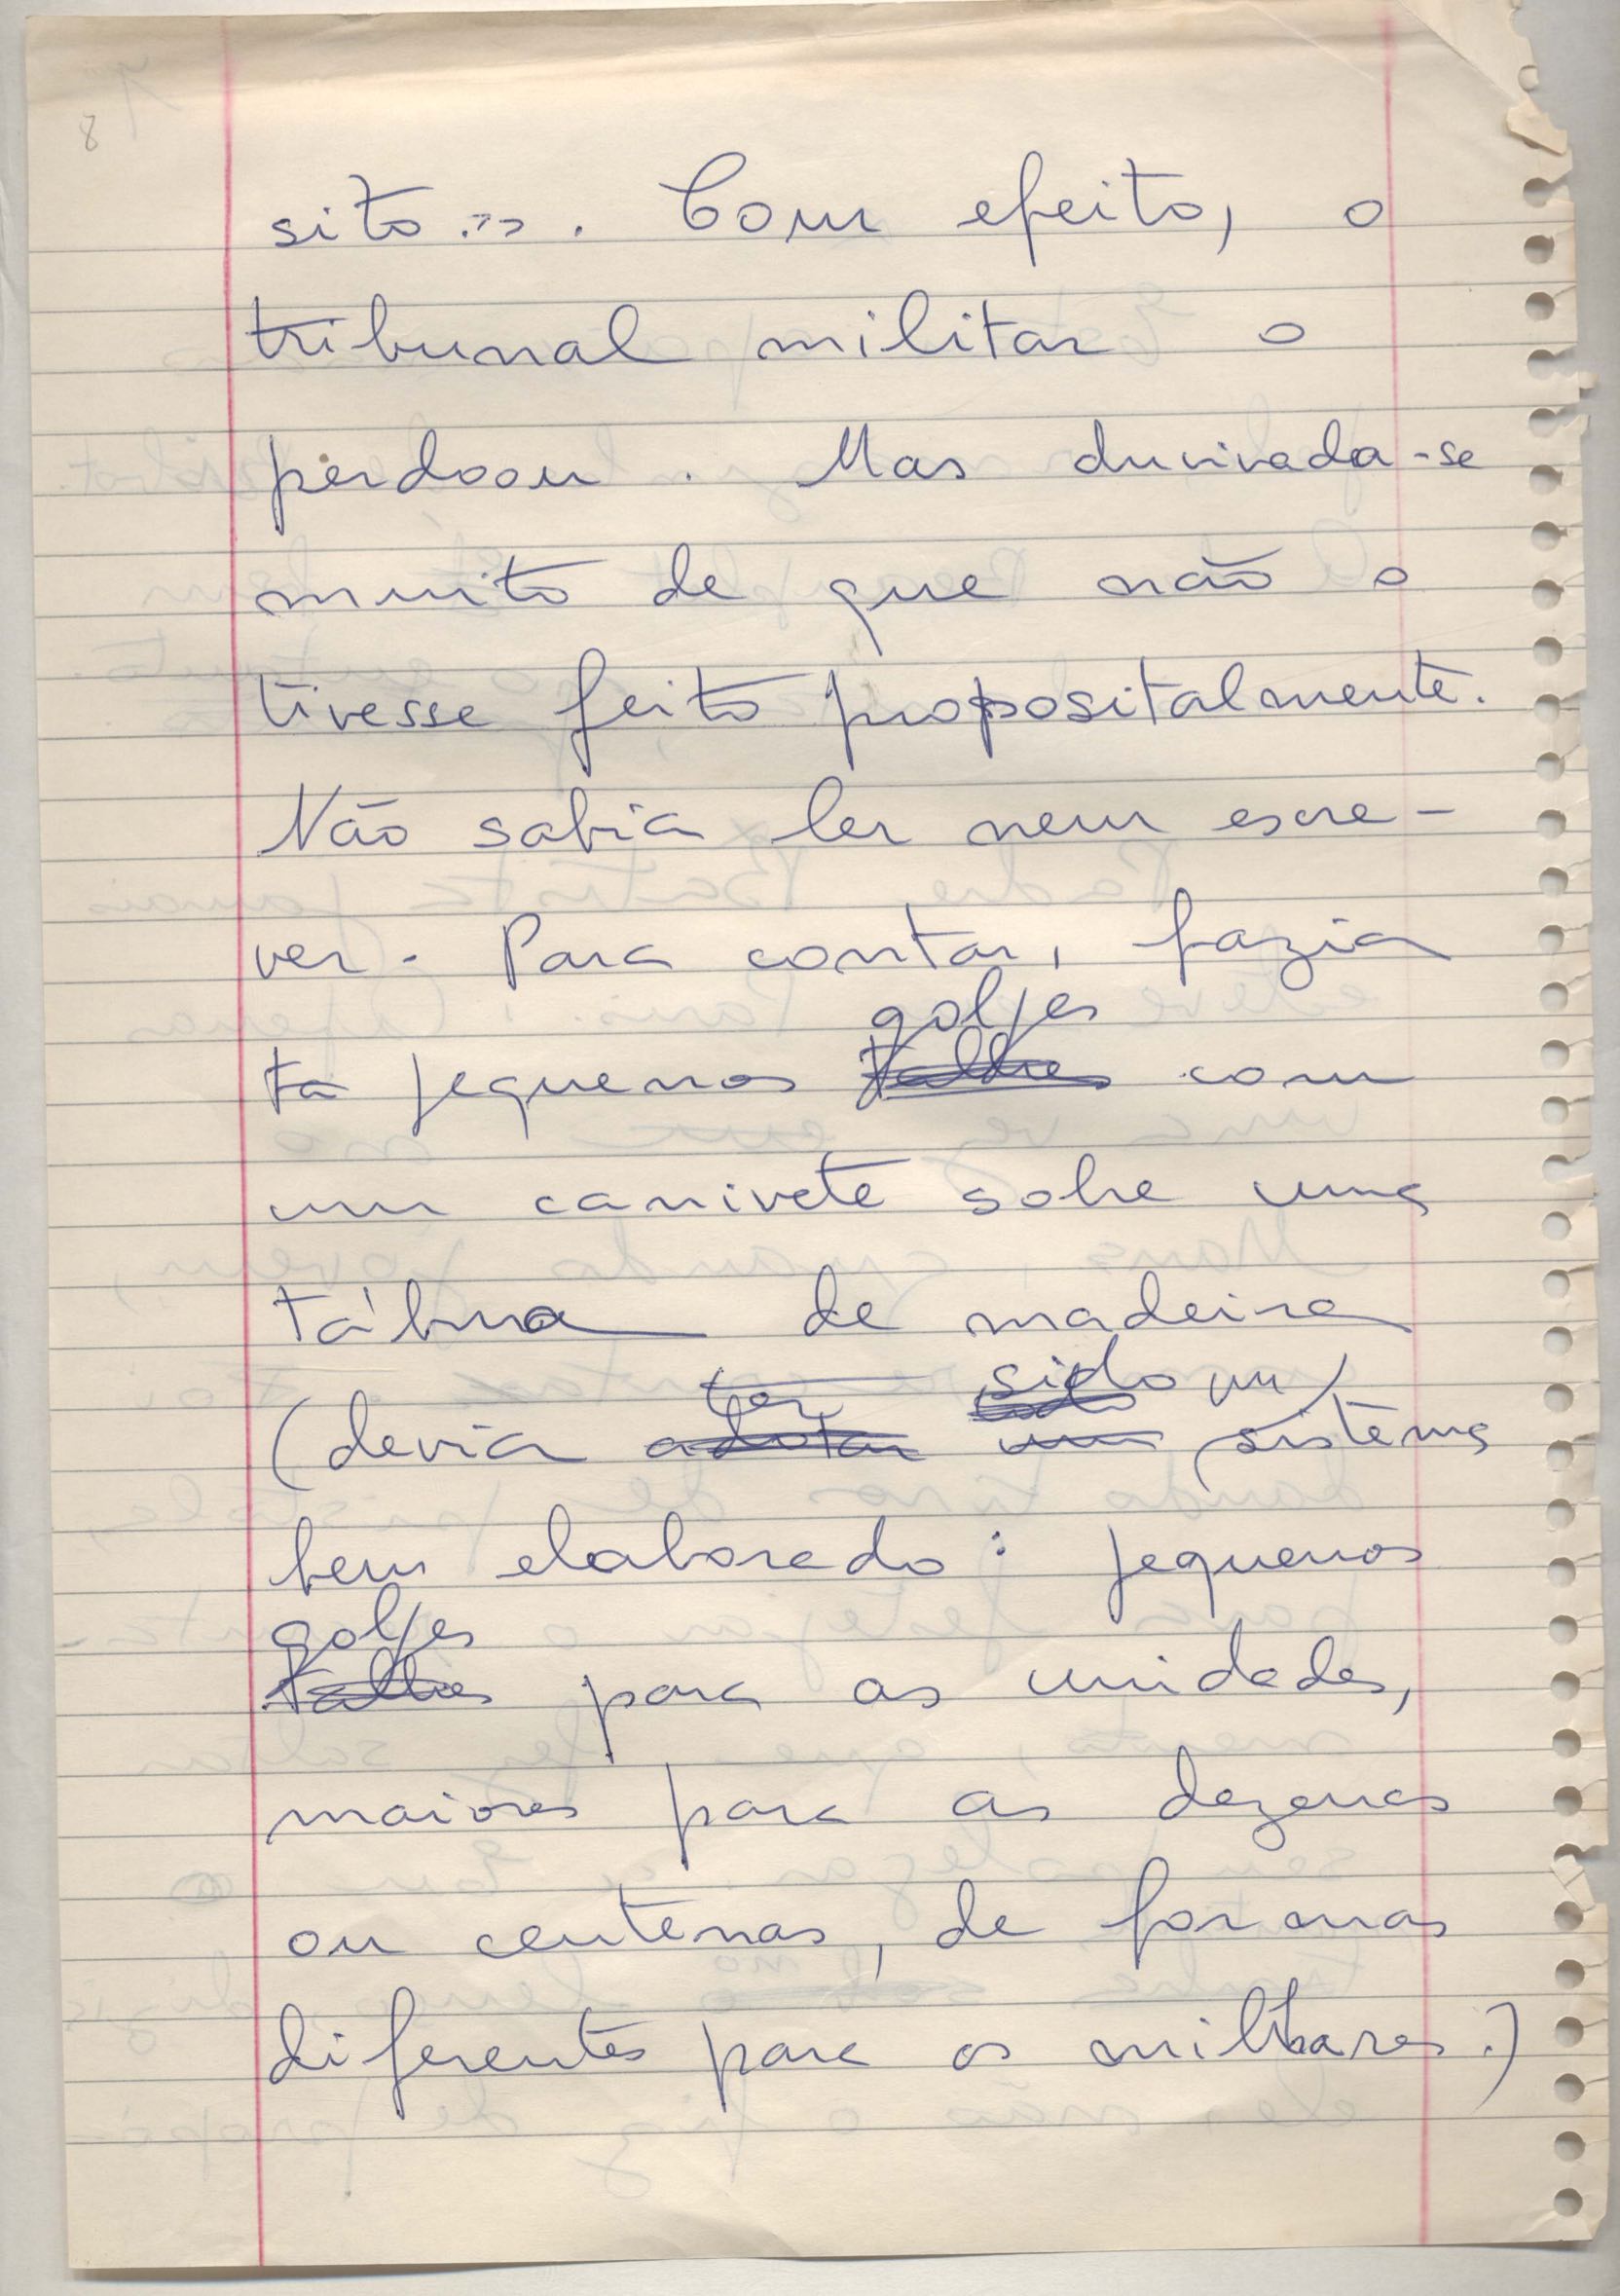 8
sito.». Com efeito, o
tribunal militar o
perdoou. Mas duvivada-se
muito de que não o
tivesse feito propositalmente.
Não sabia ler nem escre-
ver. Para contar, fazia
golpes
ta pequenos talhos com
um canivete sobre uma
tábua de madeira
ter sido um
(devia adotar um sistema
bem elaborado: pequenos
golpes
talhos para as unidades,
maiores para as dezenas
ou centenas, de formas
diferentes para os milhares.)